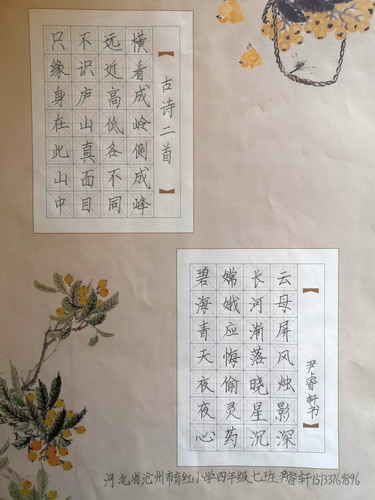 【古诗二首】
横看成岭侧成峰
远近高低各不同
不识庐山真面目
只缘身在此山中
云母屏风烛影深
长河渐落晓星沉
嫦娥应悔偷灵药
碧海青天夜夜心
【尹睿轩书】
河北省沧州市育红小学四年级七班尹睿轩